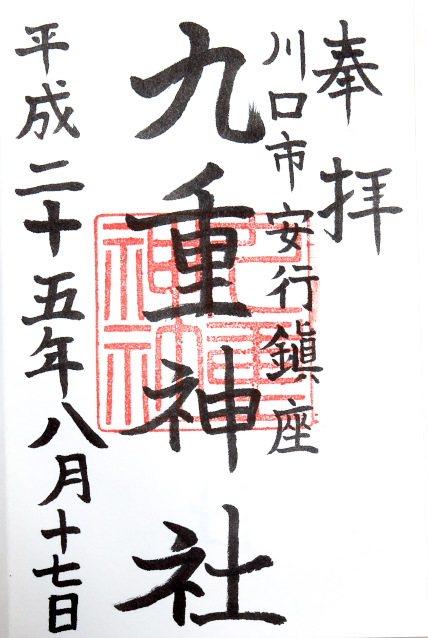 奉拝
川口市安行鎮座
九重神社
平成二十五年八月十七日
九重神社